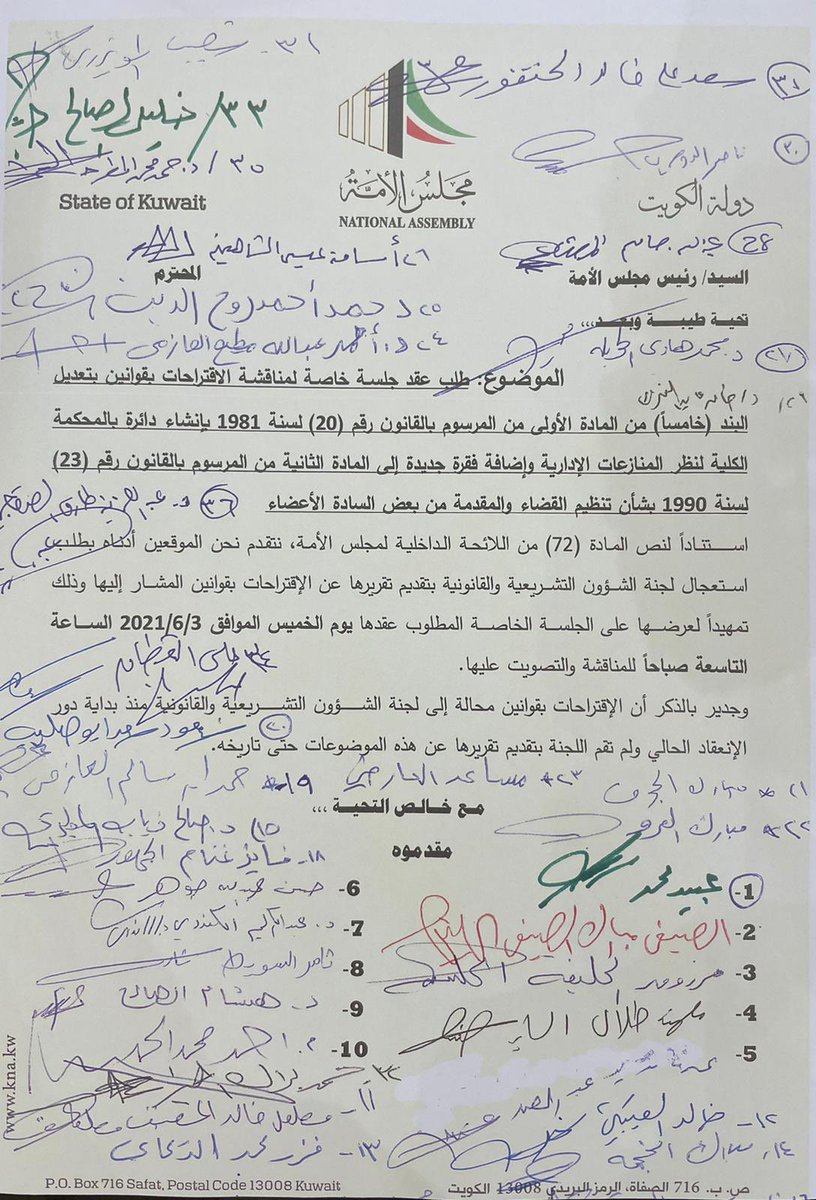 ٣١- شعيب المويزري
سعد علي خالد الخنفور
٣٣/ خليل الصالح
٣٠ ناصر الدوسري
٣٥/ د. حمد محمد المطر
State of Kuwait
مجلس الأمة
NATIONAL ASSEMBLY
دولة الكويت
٢٦ أسامة عيسى الشاهين
السيد/ رئيس مجلس الأمة
المحترم
٢٥ د حمد أحمد روح الدين
تحية طيبة وبعد،،،
٢٤ د. أحمد عبدالله مطيع العازمي
٢٧ د. محمد هادي الحويلة
الموضوع: طلب عقد جلسة خاصة لمناقشة الاقتراحات بقوانين بتعديل
البند (خامساً) من المادة الأولى من المرسوم بالقانون رقم (20) لسنة 1981 بإنشاء دائرة بالمحكمة
الكلية لنظر المنازعات الإدارية وإضافة فقرة جديدة إلى المادة الثانية من المرسوم بالقانون رقم (23)
لسنة 1990 بشأن تنظيم القضاء والمقدمة من بعض السادة الأعضاء
٣٦ د. عبدالعزيز طارق الصقعبي
استناداً لنص المادة (72) من اللائحة الداخلية لمجلس الأمة، نتقدم نحن الموقعين أدناه بطلب
استعجال لجنة الشؤون التشريعية والقانونية بتقديم تقريرها عن الإقتراحات بقوانين المشار إليها وذلك
تمهيداً لعرضها على الجلسة الخاصة المطلوب عقدها يوم الخميس الموافق 2021/6/3 الساعة
التاسعة صباحاً للمناقشة والتصويت عليها.
٣٤ علي القطان
وجدير بالذكر أن الإقتراحات بقوانين محالة إلى لجنة الشؤون التشريعية والقانونية منذ بداية دور
٢٠ سعود سعد ابوصليب
الإنعقاد الحالي ولم تقم اللجنة بتقديم تقريرها عن هذه الموضوعات حتى تاريخه.
٢١ مبارك الحجرف
٢٣ مساعد العارضي
١٩ حمدان سالم العازمي
مع خالص التحية ،،،
٢٢ مبارك العرو
١٥/ د. صالح ذياب المطيري
مقدموه
١٨- فايز غنام الجمهور
1- عبيد محمد
6- حسن عبدالله جوهر
2- الصيفي مبارك الصيفي
7- د. عبدالكريم الكندري
3- مرزوق الخليفة
8- ثامر السويط
4- مهند طلال الساير
9- د. هشام الصالح
5-
10- م. احمد محمد الحمد
١١- مهلهل خالد المضف
١٢- خالد العتيبي
١٣- فرز محمد الديحاني
١٤- مبارك الحجرف
www.kna.kw
P.O. Box 716 Safat, Postal Code 13008 Kuwait
ص. ب. 716 الصفاة، الرمز البريدي 13008 الكويت